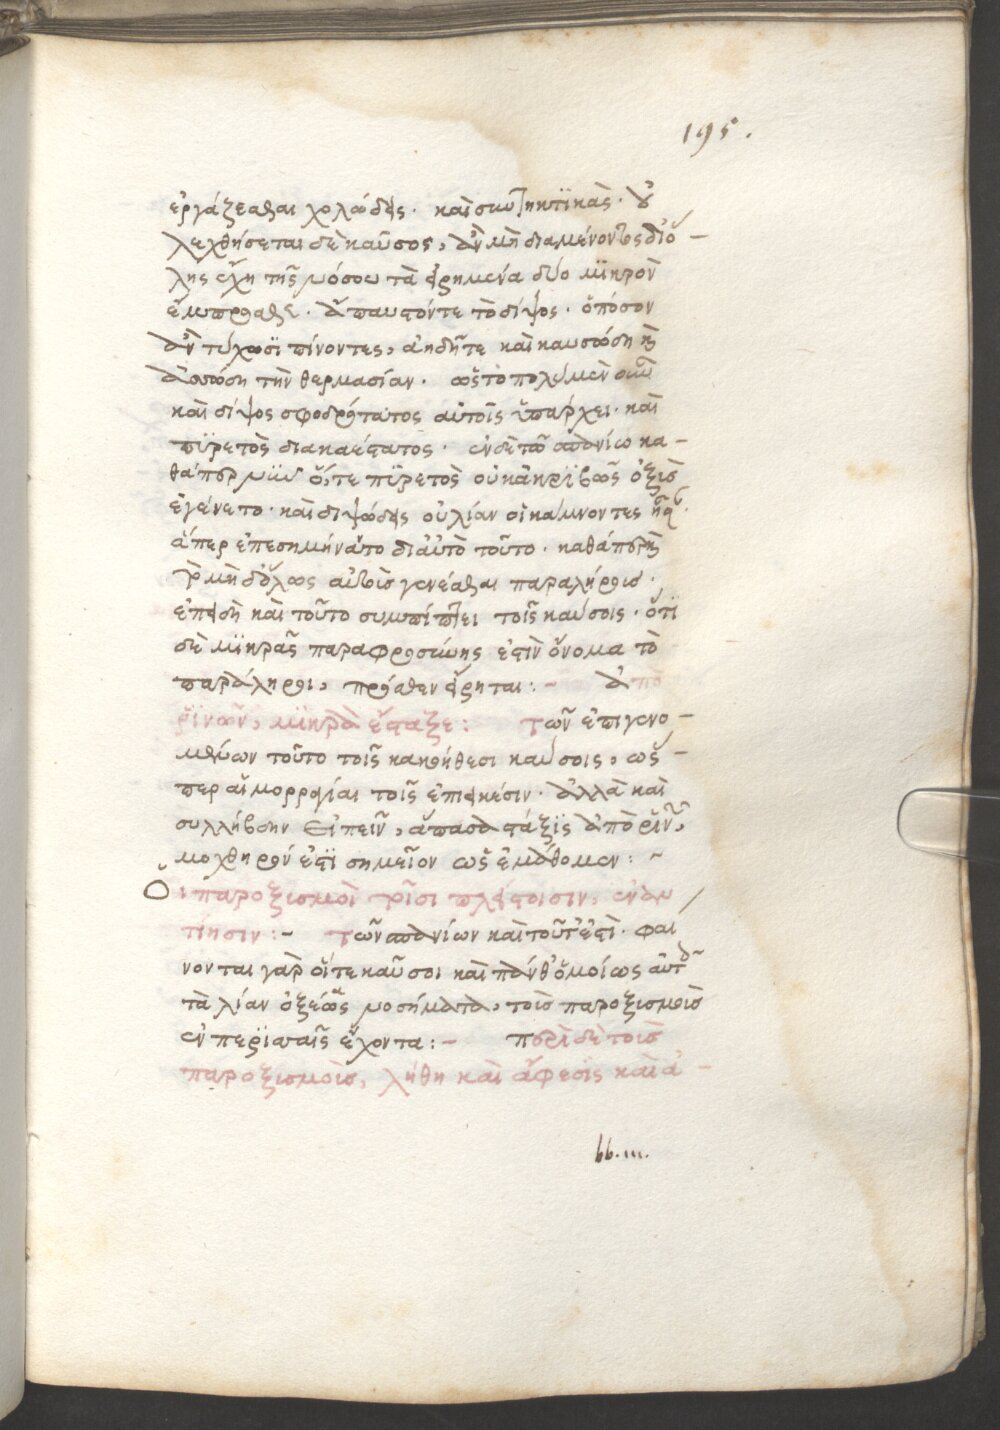 195.
ἐργάζεσθαι χολώδης· καὶ συντηκτϊκὰς· οὐ
λεχθήσεται δὲ καῦσος, ἂν μὴ διαμένοντος δϊ' ὅ-
λης ἔχη τῆς νόσου τὰ εἰρημένα δύο μϊκρὸν
ἔμπροσθεν· ἄπαυστόν τε τὸ δίψος· ὁπόσον
ἂν τύχωσϊ πίνοντες, ἀηδῆ τε καὶ καυσώδη καὶ
δακώδη τὴν θερμασίαν· ὥστο πολὺ μὲν οὖν
καὶ δίψος σφοδρότατος αὐτοῖς ὑπάρχει· καὶ
πϋρετὸς διακαέστατος· ἐν δὲ τῶ θανίω κα-
θάπερ νῦν ὅ, τε πϋρετὸς οὐκ ἀκρϊβῶς ὀξὺς
ἐγένετο· καὶ διψώδης οὐ λίαν οἱ κάμνοντες ἦσαν·
ἅπερ ἐπεσημήνατο διαὐτὸ τοῦτο· καθάπερ καὶ
τὸ μὴ δ' ὅλως αὐτοῖς γενέσθαι παραλήρους·
ἐπειδὴ καὶ τοῦτο συμπίπτει τοῖς καύσοις· ὅτϊ
δὲ μϊκρᾶς παραφροσύνης ἐστὶν ὄνομα τὸ
παράληροι, πρόσθεν εἴρηται:- ἀπὸ
ῥϊνῶν, μϊκρὰ ἔσταξε: τῶν ἐπιγενο-
μένων τοῦτο τοῖς κακοήθεσι καύσοις, ὥσ-
περ αἱμορραγίαι τοῖς ἐπιεικέσιν· ἀλλὰ καὶ
συλλήβδην εἰπεῖν, ἅπασα στάξϊς ἀπὸ ῥϊνῶν,
μοχθηρόν ἐστϊ σημεῖον ὡς ἐμάθομεν:-
Οἱ παροξυσμοὶ τοῖσι πλείστοισιν, ἐν ἀρ
τίησιν:- τῶν σπανίων καὶ τοῦτ' ἐστὶ· φαί
νονται γὰρ οἵ τε καῦσοι καὶ πάνθ' ὁμοίως αὐτοῖς
τὰ λίαν ὀξέως νοσήματα, τοὺς παροξυσμοὺς
ἐν περϊσσαῖς ἔχοντα:- περὶ δὲ τοὺς
παροξυσμοὺς, λήθη καὶ ἄφεσϊς καὶ ἀ-
bb.iii.